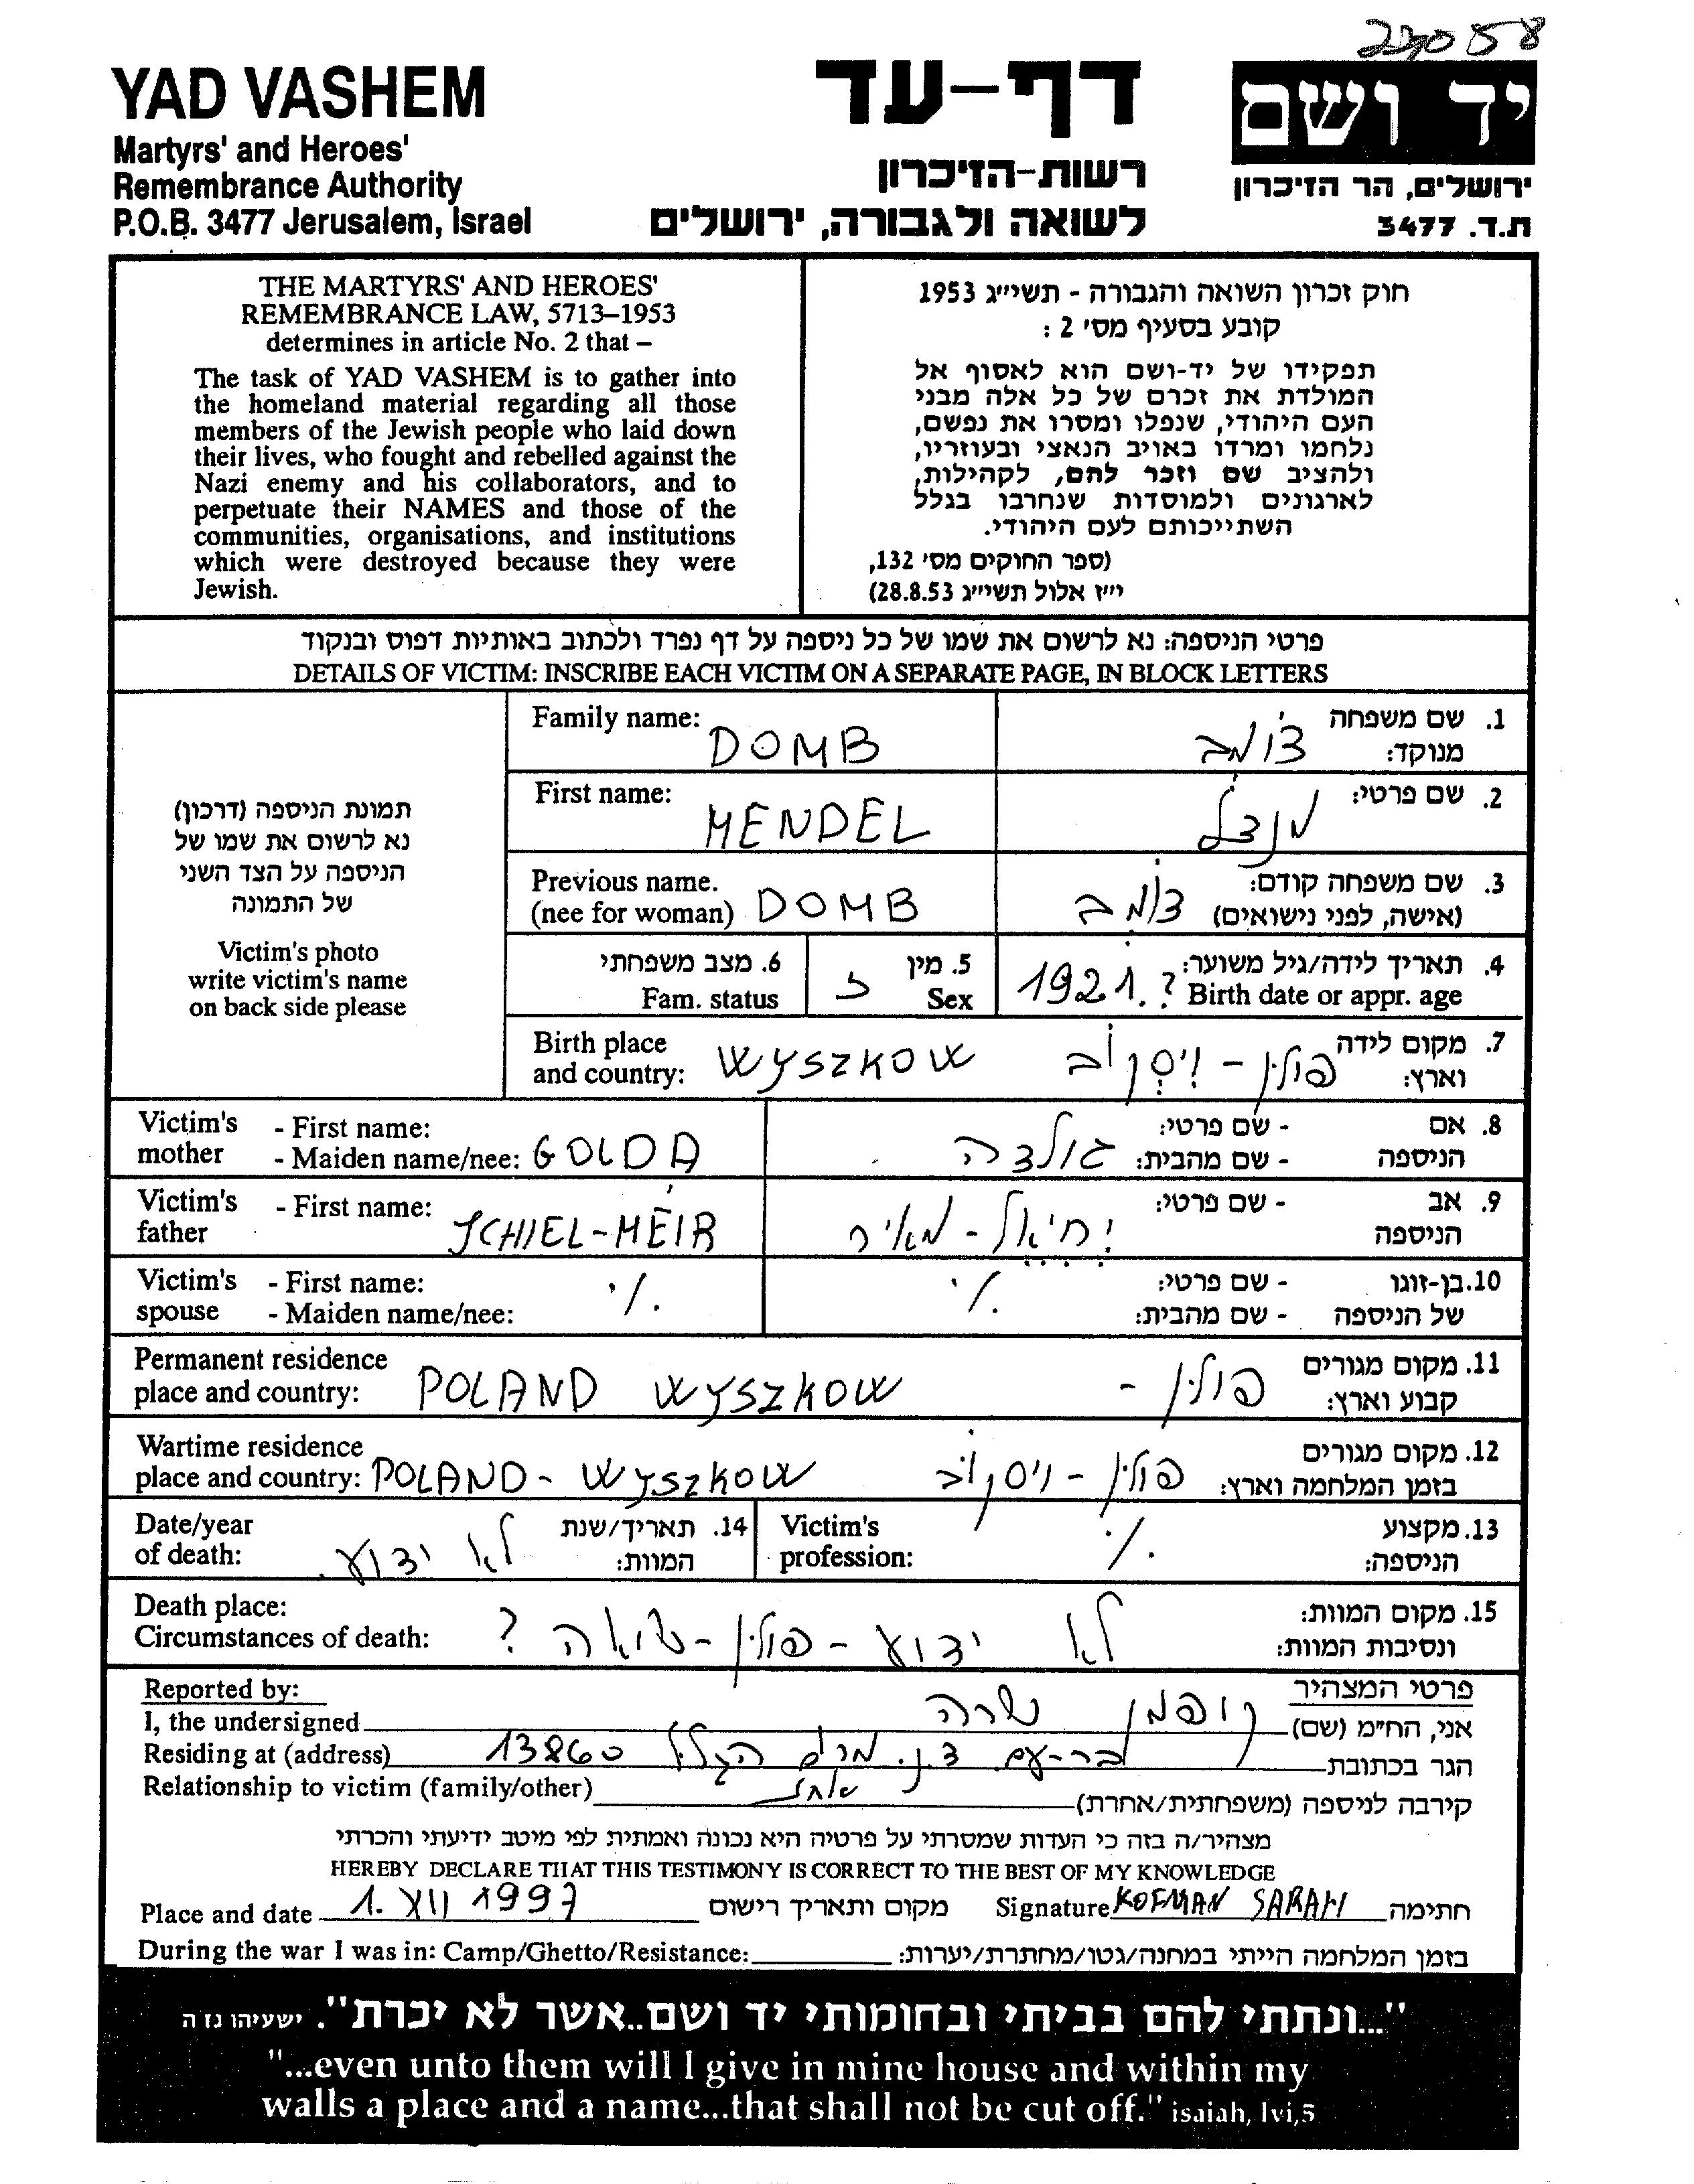 YAD VASHEM
Martyrs' and Heroes'
Remembrance Authority
P.O.B. 3477 Jerusalem, Israel
דף-עד
רשות-הזיכרון
לשואה ולגבורה, ירושלים
יד ושם
ירושלים, הר הזיכרון
ת.ד. 3477
THE MARTYRS' AND HEROES'
REMEMBRANCE LAW, 5713–1953
determines in article No. 2 that –
The task of YAD VASHEM is to gather into
the homeland material regarding all those
members of the Jewish people who laid down
their lives, who fought and rebelled against the
Nazi enemy and his collaborators, and to
perpetuate their NAMES and those of the
communities, organisations, and institutions
which were destroyed because they were
Jewish.
חוק זכרון השואה והגבורה - תשי״ג 1953
קובע בסעיף מס׳ 2 :
תפקידו של יד-ושם הוא לאסוף אל
המולדת את זכרם של כל אלה מבני
העם היהודי, שנפלו ומסרו את נפשם,
נלחמו ומרדו באויב הנאצי ובעוזריו,
ולהציב שם וזכר להם, לקהילות,
לארגונים ולמוסדות שנחרבו בגלל
השתייכותם לעם היהודי.
(ספר החוקים מס׳ 132,
י״ז אלול תשי״ג 28.8.53)
פרטי הניספה: נא לרשום את שמו של כל ניספה על דף נפרד ולכתוב באותיות דפוס ובנקוד
DETAILS OF VICTIM: INSCRIBE EACH VICTIM ON A SEPARATE PAGE, IN BLOCK LETTERS
תמונת הניספה (דרכון)
נא לרשום את שמו של
הניספה על הצד השני
של התמונה
Victim's photo
write victim's name
on back side please
Family name: DOMB
1. שם משפחה מנוקד: דומב
First name: MENDEL
2. שם פרטי: מנדל
Previous name. (nee for woman) DOMB
3. שם משפחה קודם: (אישה, לפני נישואים) דומב
4. תאריך לידה/גיל משוער: Birth date or appr. age 1921.?
5. מין Sex ז
6. מצב משפחתי Fam. status
Birth place and country: WYSZKOW
7. מקום לידה וארץ: פולין - ויסקוב
Victim's mother - First name: - Maiden name/nee: GOLDA
8. אם הניספה - שם פרטי: - שם מהבית: גולדה
Victim's father - First name: JCHIEL-MEIR
9. אב הניספה - שם פרטי: יחיאל-מאיר
Victim's spouse - First name: - Maiden name/nee: ·/.
10. בן-זוגו של הניספה - שם פרטי: - שם מהבית: ·/.
Permanent residence place and country: POLAND WYSZKOW
11. מקום מגורים קבוע וארץ: פולין -
Wartime residence place and country: POLAND - WYSZKOW
12. מקום מגורים בזמן המלחמה וארץ: פולין - ויסקוב
Date/year of death: 14. תאריך/שנת המוות: לא ידוע.
Victim's profession: 13. מקצוע הניספה: ·/.
Death place: Circumstances of death:
15. מקום המוות: ונסיבות המוות: לא ידוע - פולין - שואה ?
Reported by: פרטי המצהיר
I, the undersigned אני, הח״מ (שם) קופמן שרה
Residing at (address) הגר בכתובת בר-עם ד.נ. מרום הגליל 13860
Relationship to victim (family/other) קירבה לניספה (משפחתית/אחרת)
מצהיר/ה בזה כי העדות שמסרתי על פרטיה היא נכונה ואמתית לפי מיטב ידיעתי והכרתי
HEREBY DECLARE THAT THIS TESTIMONY IS CORRECT TO THE BEST OF MY KNOWLEDGE
Place and date 1. XII 1997 מקום ותאריך רישום Signature KOFMAN SARAH חתימה
During the war I was in: Camp/Ghetto/Resistance: בזמן המלחמה הייתי במחנה/גטו/מחתרת/יערות:
"...ונתתי להם בביתי ובחומותי יד ושם..אשר לא יכרת". ישעיהו נז ה
"...even unto them will I give in mine house and within my
walls a place and a name...that shall not be cut off." isaiah, lvi,5